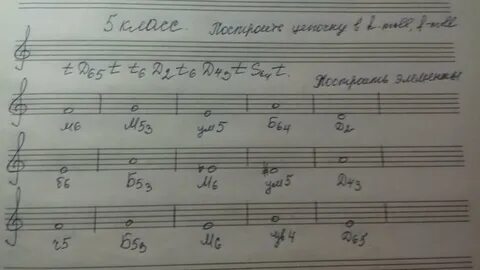 5 класс. Построить цепочку в h-moll, f-moll
t D65 t t6 D2 t6 D43 t S64 t.
Построить элементы
м6 М53 ум5 Б64 D2
б6 Б53 М6 ум5 D43
ч5 Б53 М6 ув4 D65